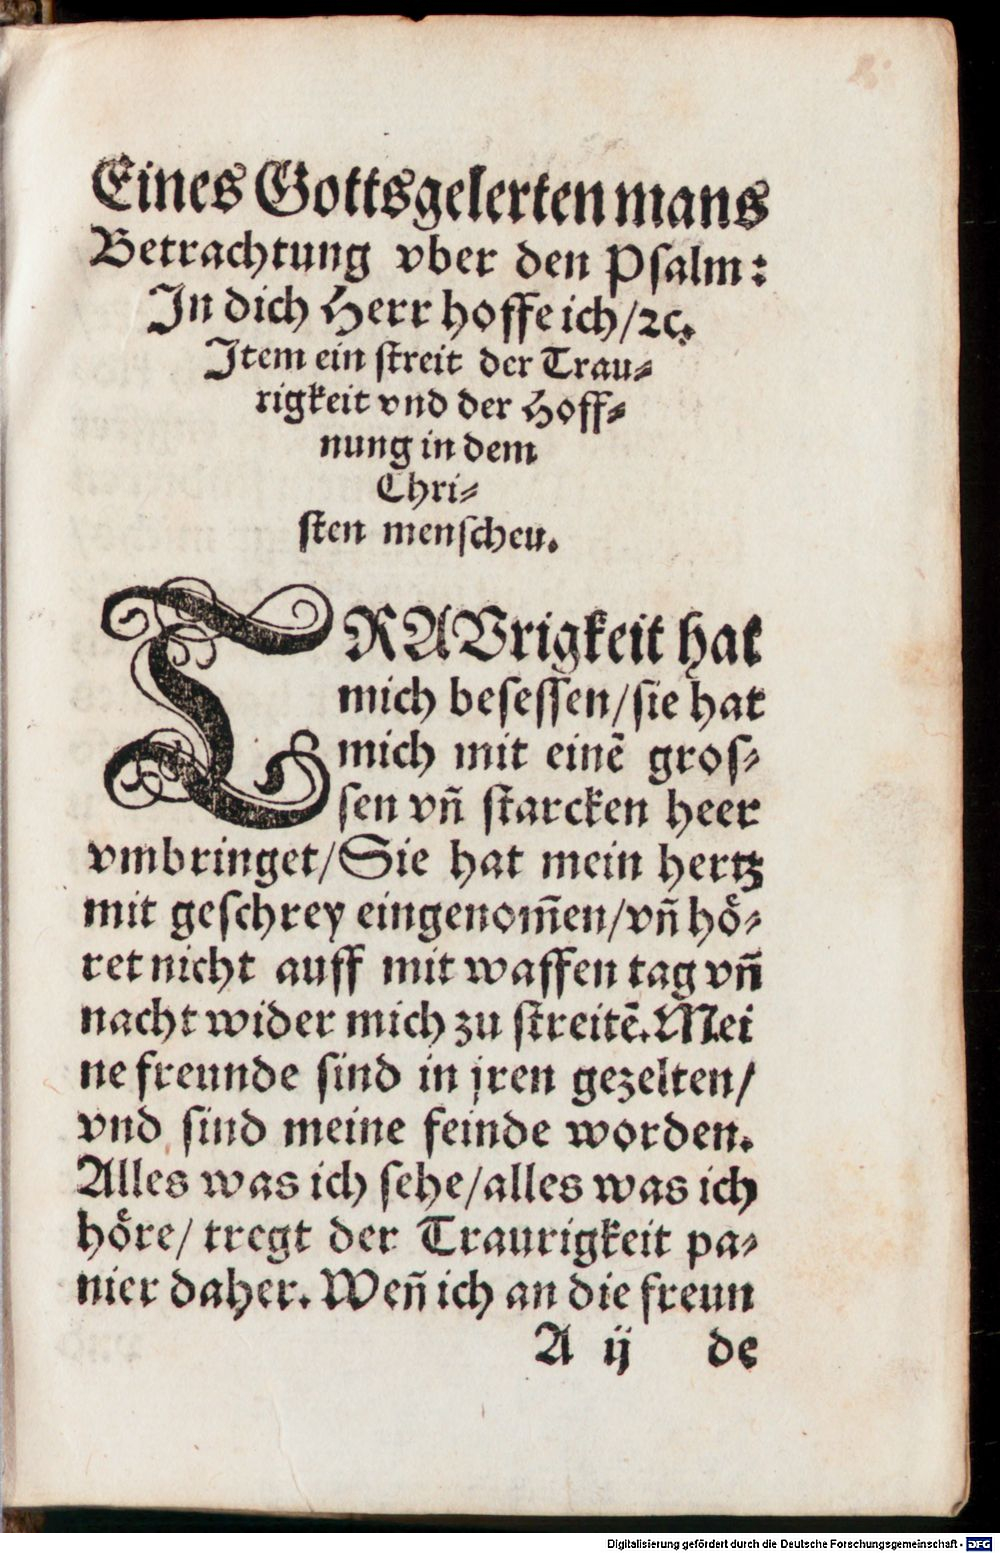 Eines Gottsgelerten mans
Betrachtung vber den Psalm:
In dich Herr hoffe ich/ꝛc.
Item ein streit der Trau⸗
rigkeit vnd der Hoff⸗
nung in dem
Chri⸗
sten menscheu.
TRAVrigkeit hat
mich besessen/sie hat
mich mit einẽ gros⸗
sen vñ starcken heer
vmbringet/Sie hat mein hertz
mit geschrey eingenom̃en/vñ hoͤ⸗
ret nicht auff mit waffen tag vñ
nacht wider mich zu streitẽ. Mei
ne freunde sind in jren gezelten/
vnd sind meine feinde worden.
Alles was ich sehe/alles was ich
hoͤre/ tregt der Traurigkeit pa⸗
nier daher. Weñ ich an die freun
A ij de
Digitalisierung gefördert durch die Deutsche Forschungsgemeinschaft - DFG